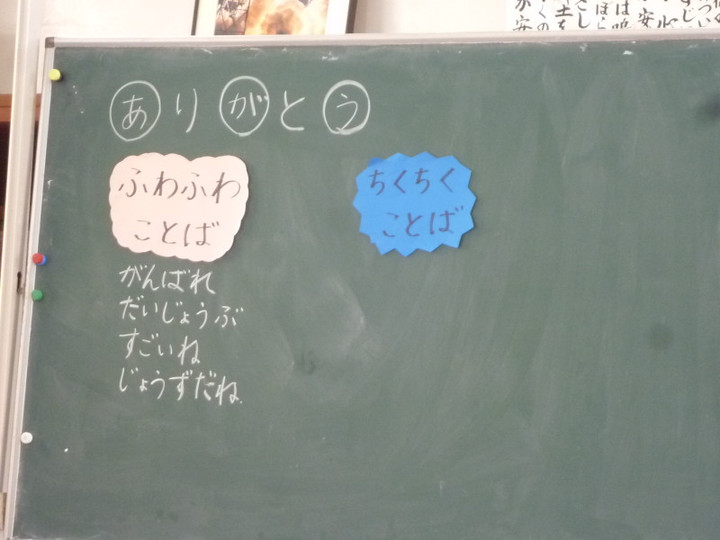 ありがとう
ふわふわ
ことば
ちくちく
ことば
がんばれ
だいじょうぶ
すごいね
じょうずだね.